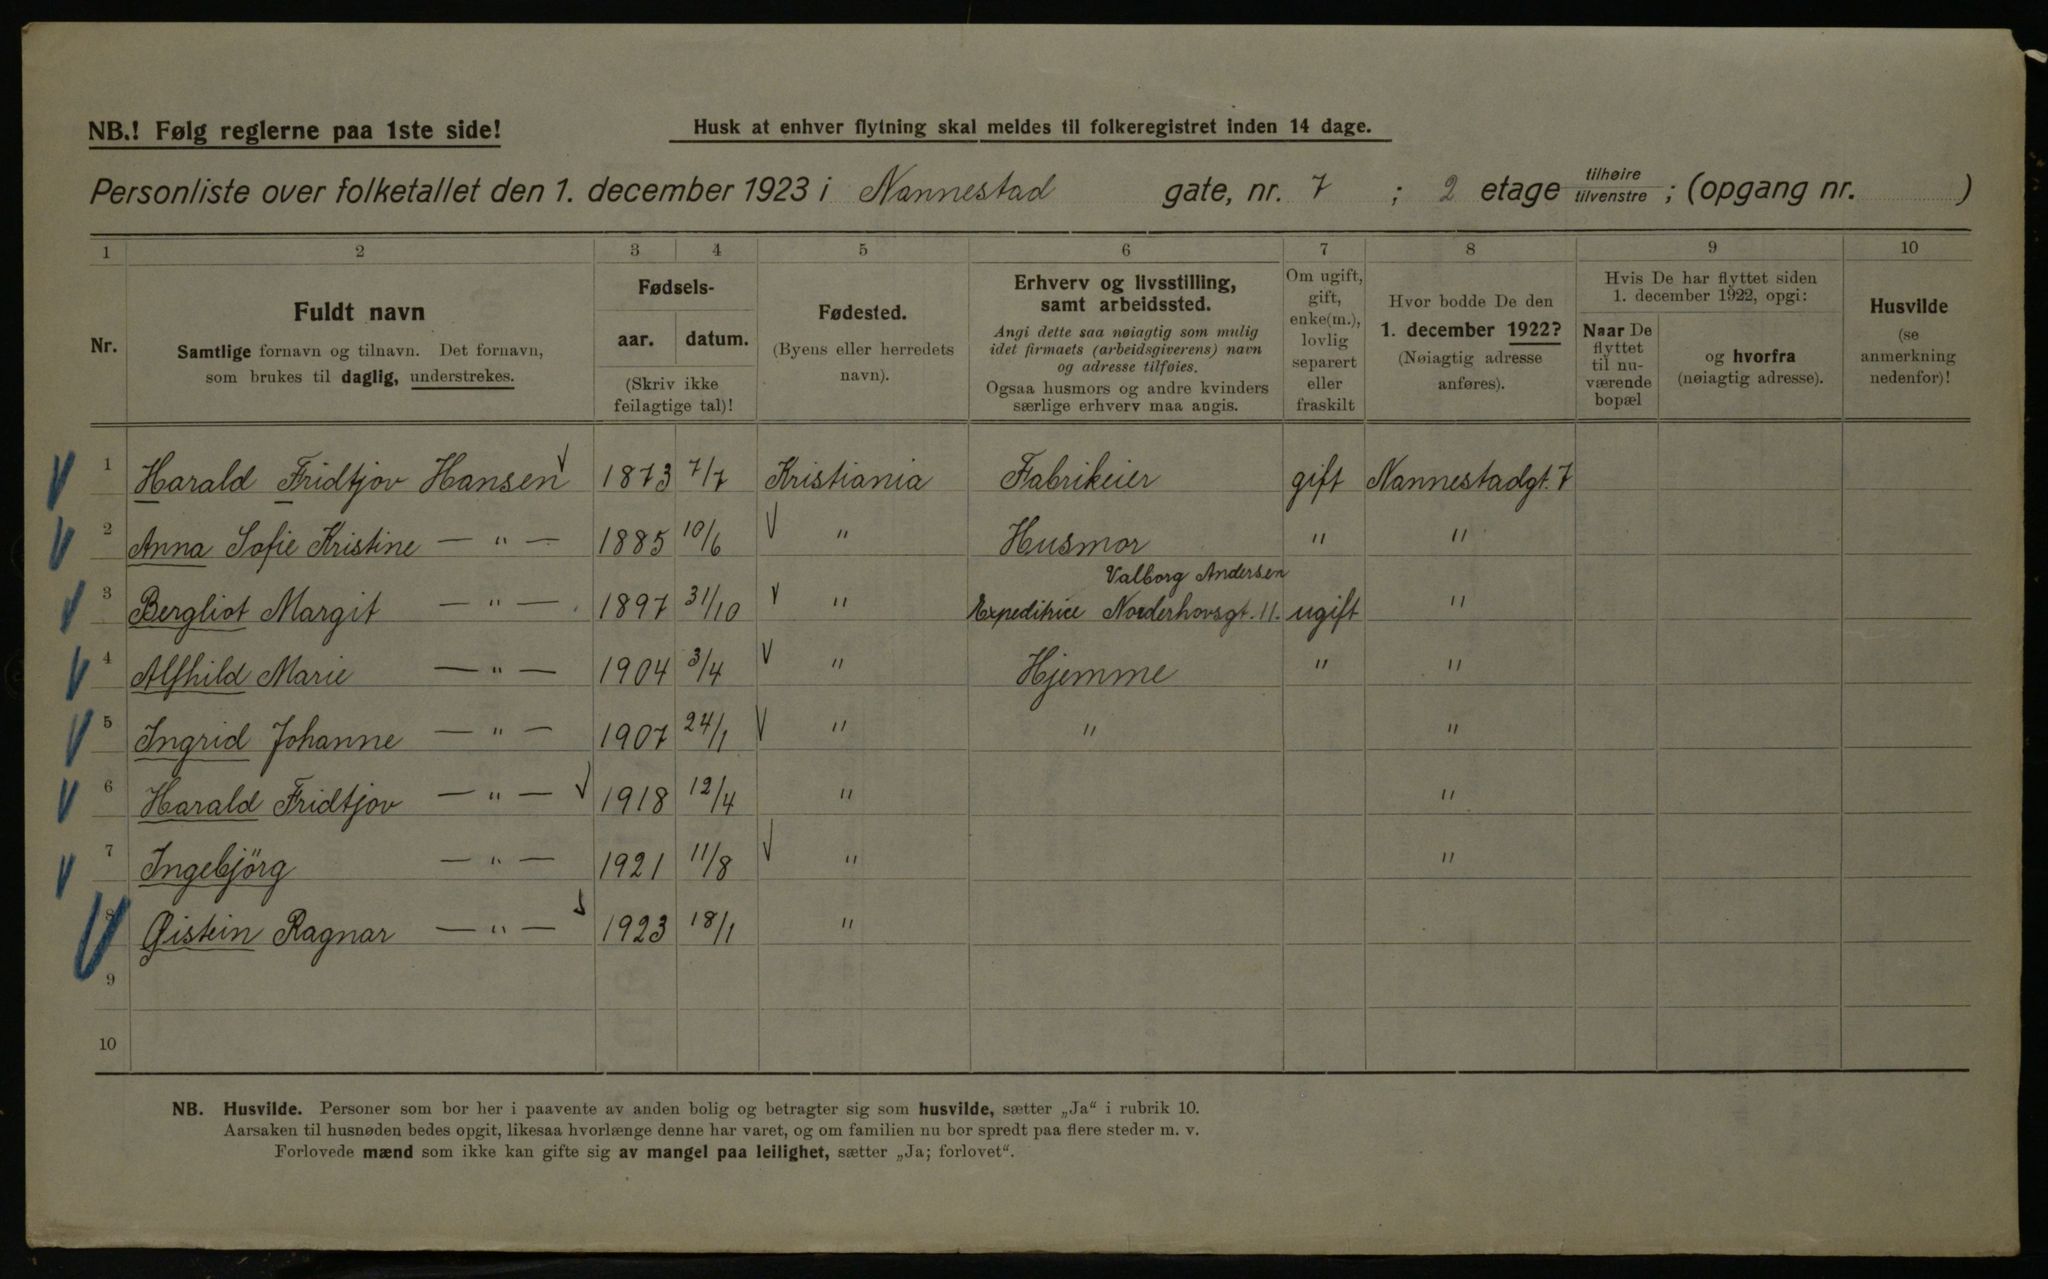 NB.! Følg reglerne paa 1ste side!
Husk at enhver flytning skal meldes til folkeregistret inden 14 dage.
Personliste over folketallet den 1. december 1923 i Nannestad gate, nr. 7 ; 2 etage tilhøire tilvenstre ; (opgang nr. )
1 2 3 4 5 6 7 8 9 10
Nr.
Fuldt navn
Samtlige fornavn og tilnavn. Det fornavn,
som brukes til daglig, understrekes.
Fødsels-
aar. datum.
(Skriv ikke
feilagtige tal)!
Fødested.
(Byens eller herredets
navn).
Erhverv og livsstilling,
samt arbeidssted.
Angi dette saa nøiagtig som mulig
idet firmaets (arbeidsgiverens) navn
og adresse tilføies.
Ogsaa husmors og andre kvinders
særlige erhverv maa angis.
Om ugift,
gift,
enke(m.),
lovlig
separert
eller
fraskilt
Hvor bodde De den
1. december 1922?
(Nøiagtig adresse
anføres).
Hvis De har flyttet siden
1. december 1922, opgi:
Naar De
flyttet
til nu-
værende
bopæl
og hvorfra
(nøiagtig adresse).
Husvilde
(se
anmerkning
nedenfor)!
1 Harald Fridtjov Hansen 1873 7/7 Kristiania Fabrikeier gift Nannestadgt. 7
2 Anna Sofie Kristine — " — 1885 10/6 " Husmor " "
Valborg Andersen
3 Bergliot Margit — " — 1897 31/10 " Expeditrice Norderhovsgt. 11. ugift "
4 Alfhild Marie — " — 1904 3/4 " Hjemme " "
5 Ingrid Johanne — " — 1907 24/1 " " "
6 Harald Fridtjov — " — 1918 12/4 " "
7 Ingebjörg — " — 1921 11/8 " "
8 Øistein Ragnar — " — 1923 18/1 "
9
10
NB. Husvilde. Personer som bor her i paavente av anden bolig og betragter sig som husvilde, sætter „Ja“ i rubrik 10.
Aarsaken til husnøden bedes opgit, likesaa hvorlænge denne har varet, og om familien nu bor spredt paa flere steder m. v.
Forlovede mænd som ikke kan gifte sig av mangel paa leilighet, sætter „Ja; forlovet“.